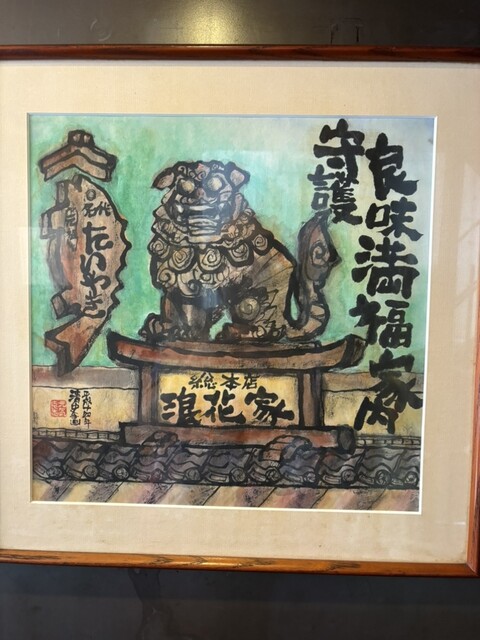 良味満福家内
守護
名代
たいやき
総本店
浪花家